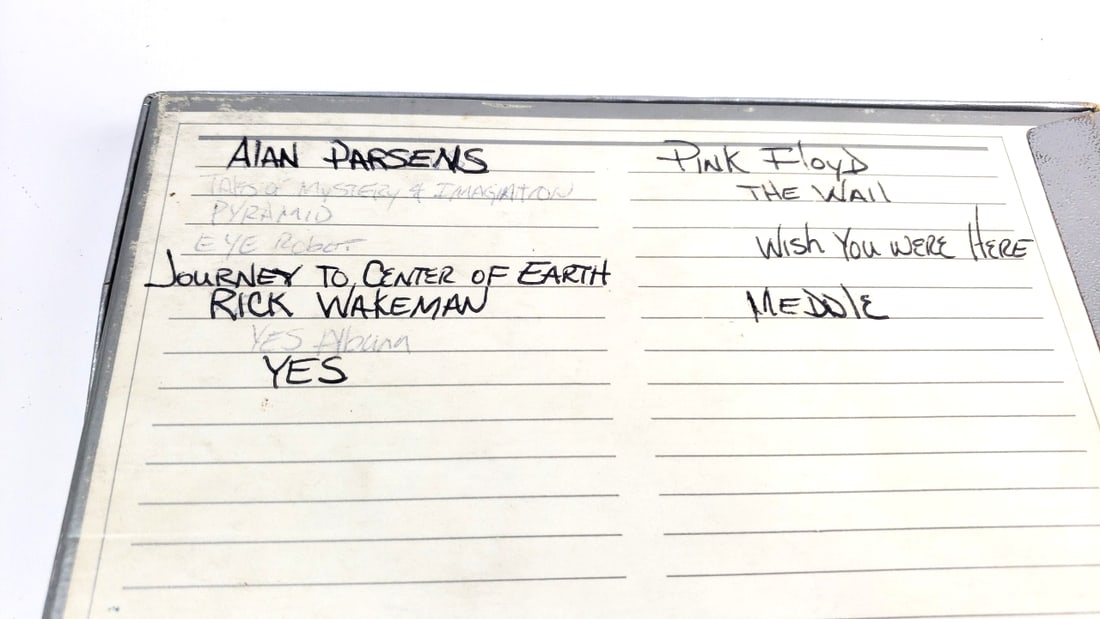 Alan Parsens
Tales of Mystery & Imagination
Pyramid
EYE Robot
Journey to Center of Earth
Rick Wakeman
YES Album
YES
Pink Floyd
The Wall
Wish You Were Here
Meddle